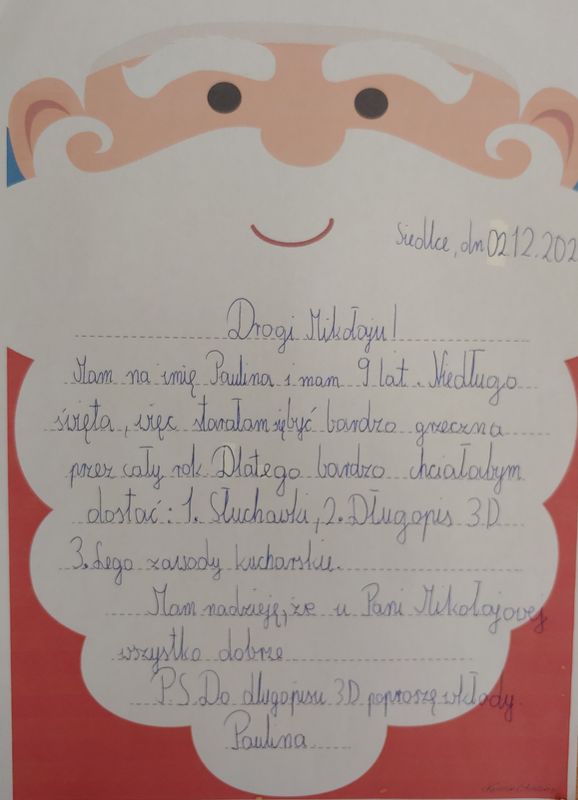 Siedlce, dn 02.12.202
Drogi Mikołaju!
Mam na imię Paulina i mam 9 lat. Niedługo
święta, więc starałam się być bardzo grzeczna
przez cały rok. Dlatego bardzo chciałabym
dostać: 1. Słuchawki, 2. Długopis 3D
3. Lego zawody kucharskie.
Mam nadzieję, że u Pani Mikołajowej
wszystko dobrze
P.S. Do długopisu 3D poproszę wkłady.
Paulina